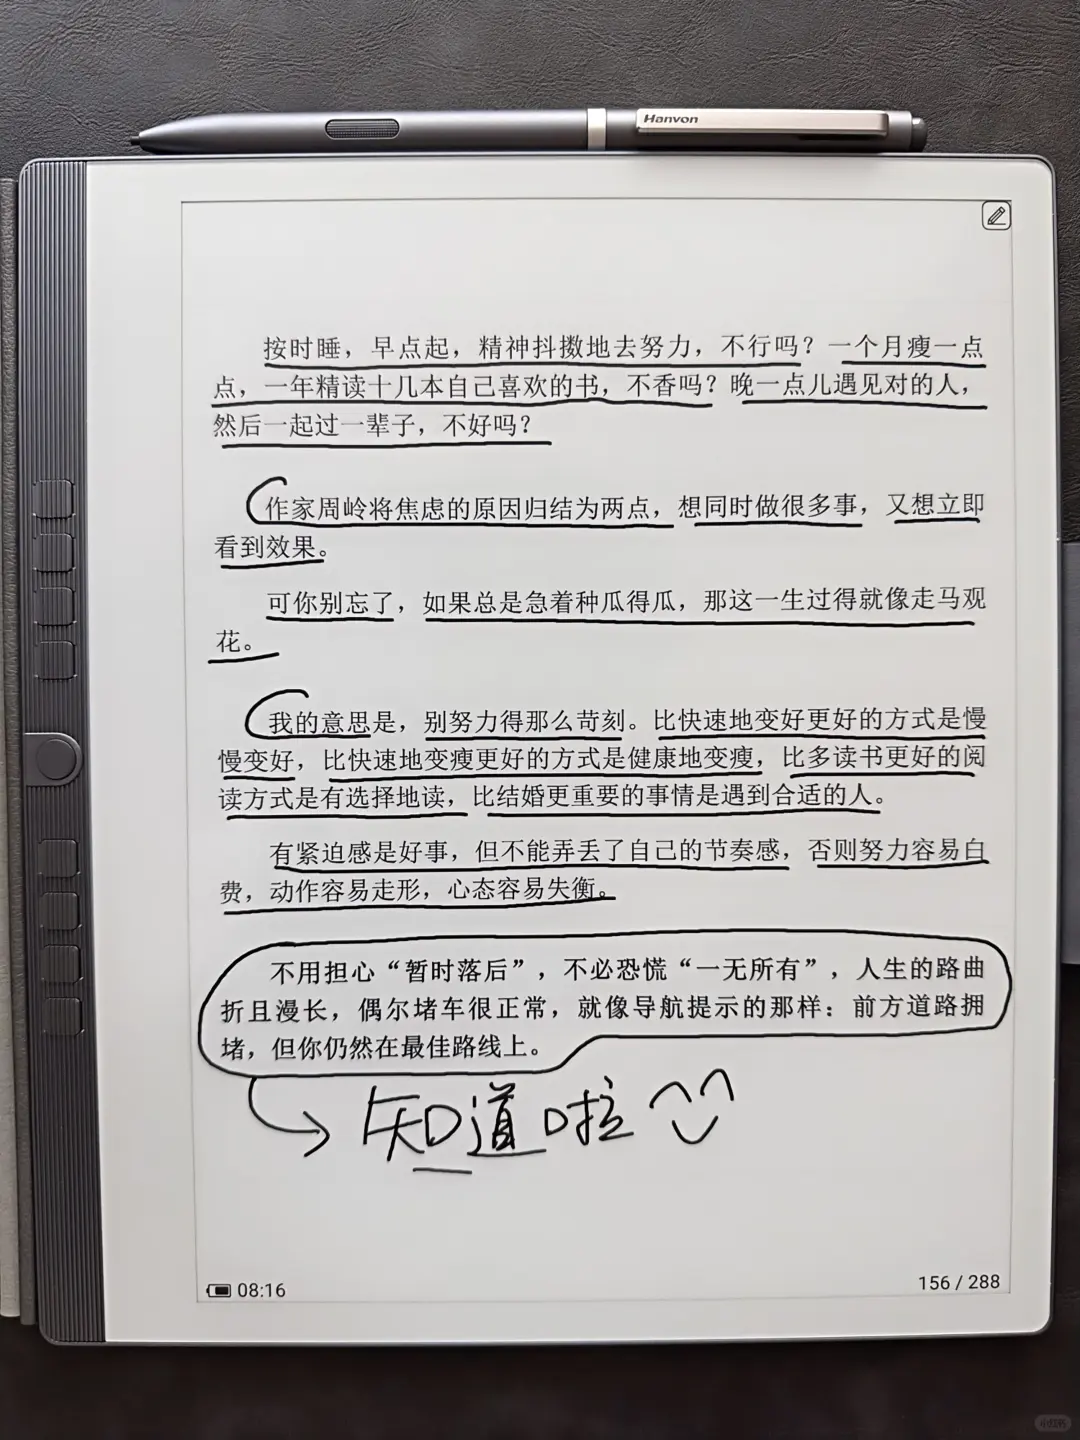 Hanvon
按时睡，早点起，精神抖擞地去努力，不行吗？一个月瘦一点
点，一年精读十几本自己喜欢的书，不香吗？晚一点儿遇见对的人，
然后一起过一辈子，不好吗？
作家周岭将焦虑的原因归结为两点，想同时做很多事，又想立即
看到效果。
可你别忘了，如果总是急着种瓜得瓜，那这一生过得就像走马观
花。
我的意思是，别努力得那么苛刻。比快速地变好更好的方式是慢
慢变好，比快速地变瘦更好的方式是健康地变瘦，比多读书更好的阅
读方式是有选择地读，比结婚更重要的事情是遇到合适的人。
有紧迫感是好事，但不能弄丢了自己的节奏感，否则努力容易白
费，动作容易走形，心态容易失衡。
不用担心“暂时落后”，不必恐慌“一无所有”，人生的路曲
折且漫长，偶尔堵车很正常，就像导航提示的那样：前方道路拥
堵，但你仍然在最佳路线上。
知道啦
08:16
156 / 288
小红书